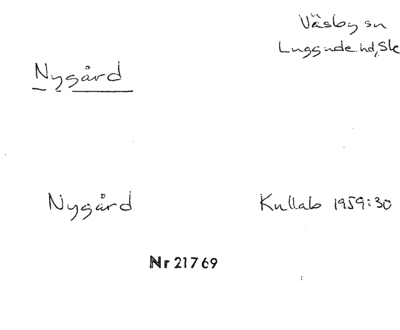 Väsby sn
Luggude hd, Sk
Nygård
Nygård Kullab 1959:30
Nr 21769